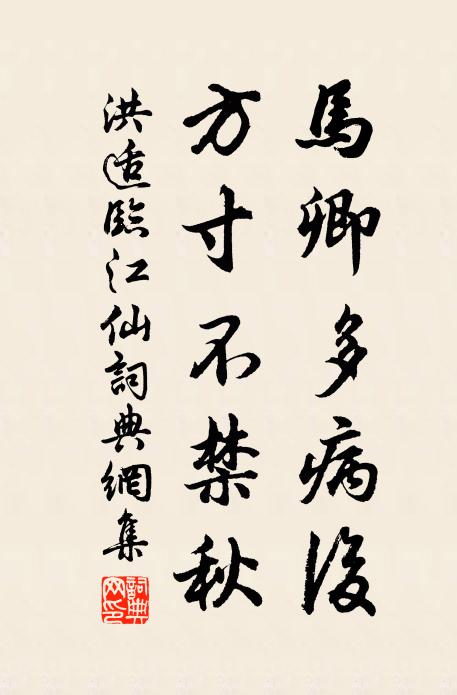 馬卿多病後
方寸不禁秋
洪适臨江仙詞典網集
詞典網印